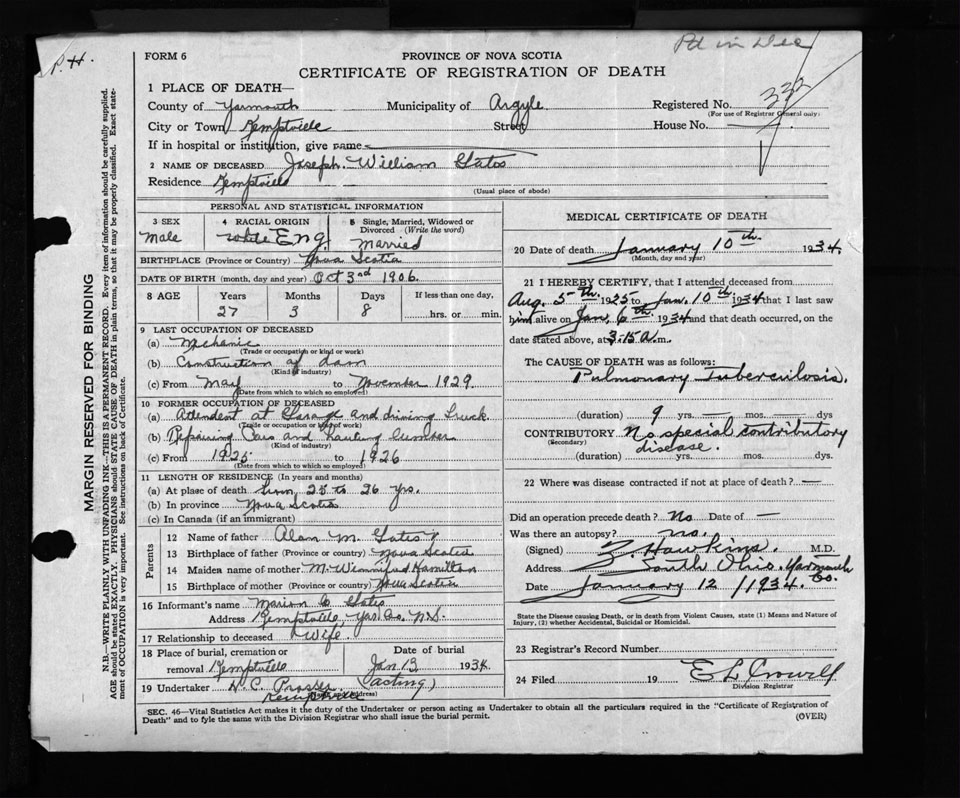 Pd in Dec
P.H.
FORM 6
PROVINCE OF NOVA SCOTIA
CERTIFICATE OF REGISTRATION OF DEATH
1 PLACE OF DEATH—
County of Yarmouth Municipality of Argyle Registered No. 332
(For use of Registrar General only)
City or Town Kemptville Street House No.
If in hospital or institution, give name
2 NAME OF DECEASED Joseph William Gates
Residence Kemptville
(Usual place of abode)
PERSONAL AND STATISTICAL INFORMATION
3 SEX Male
4 RACIAL ORIGIN White Eng.
5 Single, Married, Widowed or Divorced (Write the word) Married
BIRTHPLACE (Province or Country) Nova Scotia
DATE OF BIRTH (month, day and year) Oct 3rd 1906.
8 AGE Years Months Days If less than one day,
27 3 8 hrs. or min.
9 LAST OCCUPATION OF DECEASED
(a) Mechanic
(Trade or occupation or kind of work)
(b) Construction of dam
(Kind of industry)
(c) From May to November 1929
(Date from which to which so employed)
10 FORMER OCCUPATION OF DECEASED
(a) Attendent at Garage and driving truck.
(Trade or occupation or kind of work)
(b) Repairing Cars and hauling lumber
(Kind of industry)
(c) From 1925 to 1926
(Date from which to which so employed)
11 LENGTH OF RESIDENCE (In years and months)
(a) At place of death from 25 to 26 yrs.
(b) In province Nova Scotia
(c) In Canada (if an immigrant)
Parents
12 Name of father Alan M. Gates
13 Birthplace of father (Province or country) Nova Scotia
14 Maiden name of mother M. Winnifred Hamilton
15 Birthplace of mother (Province or country) Nova Scotia
16 Informant's name Marion Gates
Address Kemptville, Yar. Co. N.S.
17 Relationship to deceased Wife
18 Place of burial, cremation or removal Kemptville
Date of burial Jan 13 1934
19 Undertaker H. C. Prosser. (acting)
Kemptville
MEDICAL CERTIFICATE OF DEATH
20 Date of death January 10th. 1934.
(Month, day and year)
21 I HEREBY CERTIFY, that I attended deceased from
Aug. 5th. 1925 to Jan. 10th 1934 that I last saw
him alive on Jan, 6th. 1934 and that death occurred, on
date stated above, at 3.15 A. m.
The CAUSE OF DEATH was as follows:
Pulmonary Tuberculosis.
(duration) 9 yrs. — mos. — dys
CONTRIBUTORY No special contributory
(Secondary) disease.
(duration) yrs. mos. dys.
22 Where was disease contracted if not at place of death? —
Did an operation precede death? No Date of —
Was there an autopsy? no.
(Signed) Z. Hawkins. M.D.
Address South Ohio. Yarmouth Co.
Date January 12 1934.
State the Disease causing Death, or in death from Violent Causes, state (1) Means and Nature of
Injury, (2) whether Accidental, Suicidal or Homicidal.
23 Registrar's Record Number
24 Filed 19 E L Crowell
Division Registrar
SEC. 46—Vital Statistics Act makes it the duty of the Undertaker or person acting as Undertaker to obtain all the particulars required in the "Certificate of Registration of
Death" and to fyle the same with the Division Registrar who shall issue the burial permit.
(OVER)
MARGIN RESERVED FOR BINDING
N.B.—WRITE PLAINLY WITH UNFADING INK—THIS IS A PERMANENT RECORD. Every item of information should be carefully supplied.
AGE should be stated EXACTLY. PHYSICIANS should STATE CAUSE OF DEATH in plain terms, so that it may be properly classified. Exact state-
ment of OCCUPATION is very important. See instructions on back of Certificate.